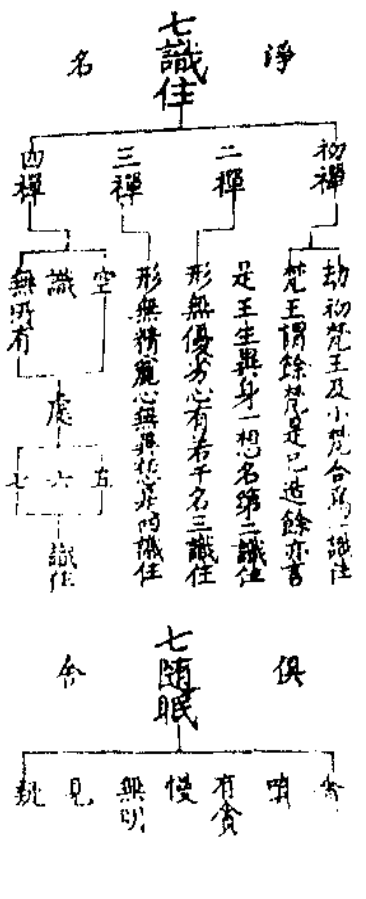 七識住
淨
名
初禪
二禪
三禪
四禪
劫初梵王及小梵合為一識住
梵王謂餘梵是已造餘亦言
是王生異身一想名第二識住
形無優劣心有若干名三識住
形無精麁心無異想 識住
空
識
無所有
處
五
六
七
識住
七隨眠
俱
舍
有貪
慢
無明
見